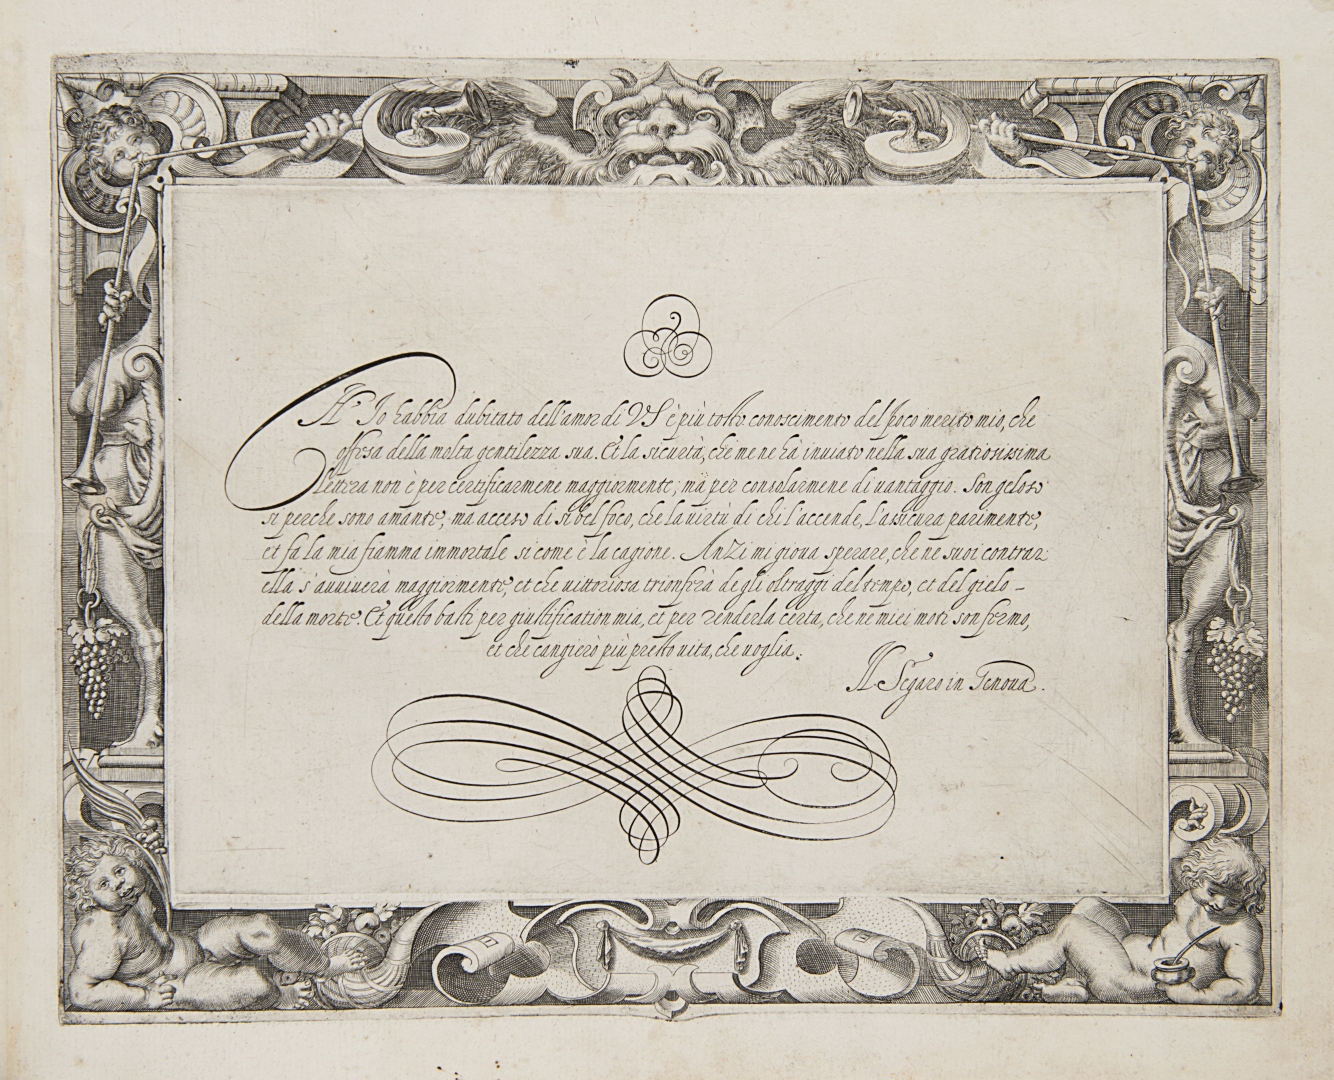 Ch' Io habbia dubitato dell'amor di V S è più tosto conoscimento del poco merito mio, che
offesa della molta gentilezza sua. Et la sicurtà, che me ne hà inuiato nella sua gratiosissima
lettera non è per certificarmene maggiormente, mà per consolarmene di uantaggio. Son geloso
si perche sono amante, ma acceso di si bel foco, che la uirtù di chi l'accende, l'assicura parimente,
et fa la mia fiamma immortale si come è la cagione. Anzi mi gioua sperare, che ne suoi contrar
ella s'auuiuerà maggiormente, et che uittoriosa trionferà degli oltraggi del tempo, et del gielo -
della morte. Et questo basti per giustification mia, et per renderla certa, che ne miei moti son fermo,
et che cangierò più presto uita, che uoglia.
Il Segaro in Genoua.